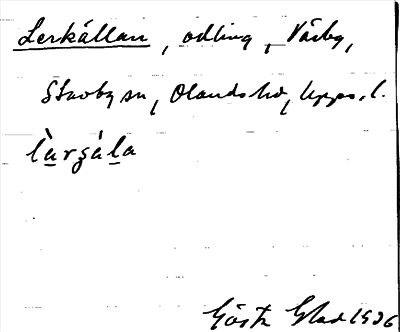 Lerkällan, odling, Väsby,
Stavby sn, Olands hd, Upps. l.
làrʒála
Gösta Glad 1936